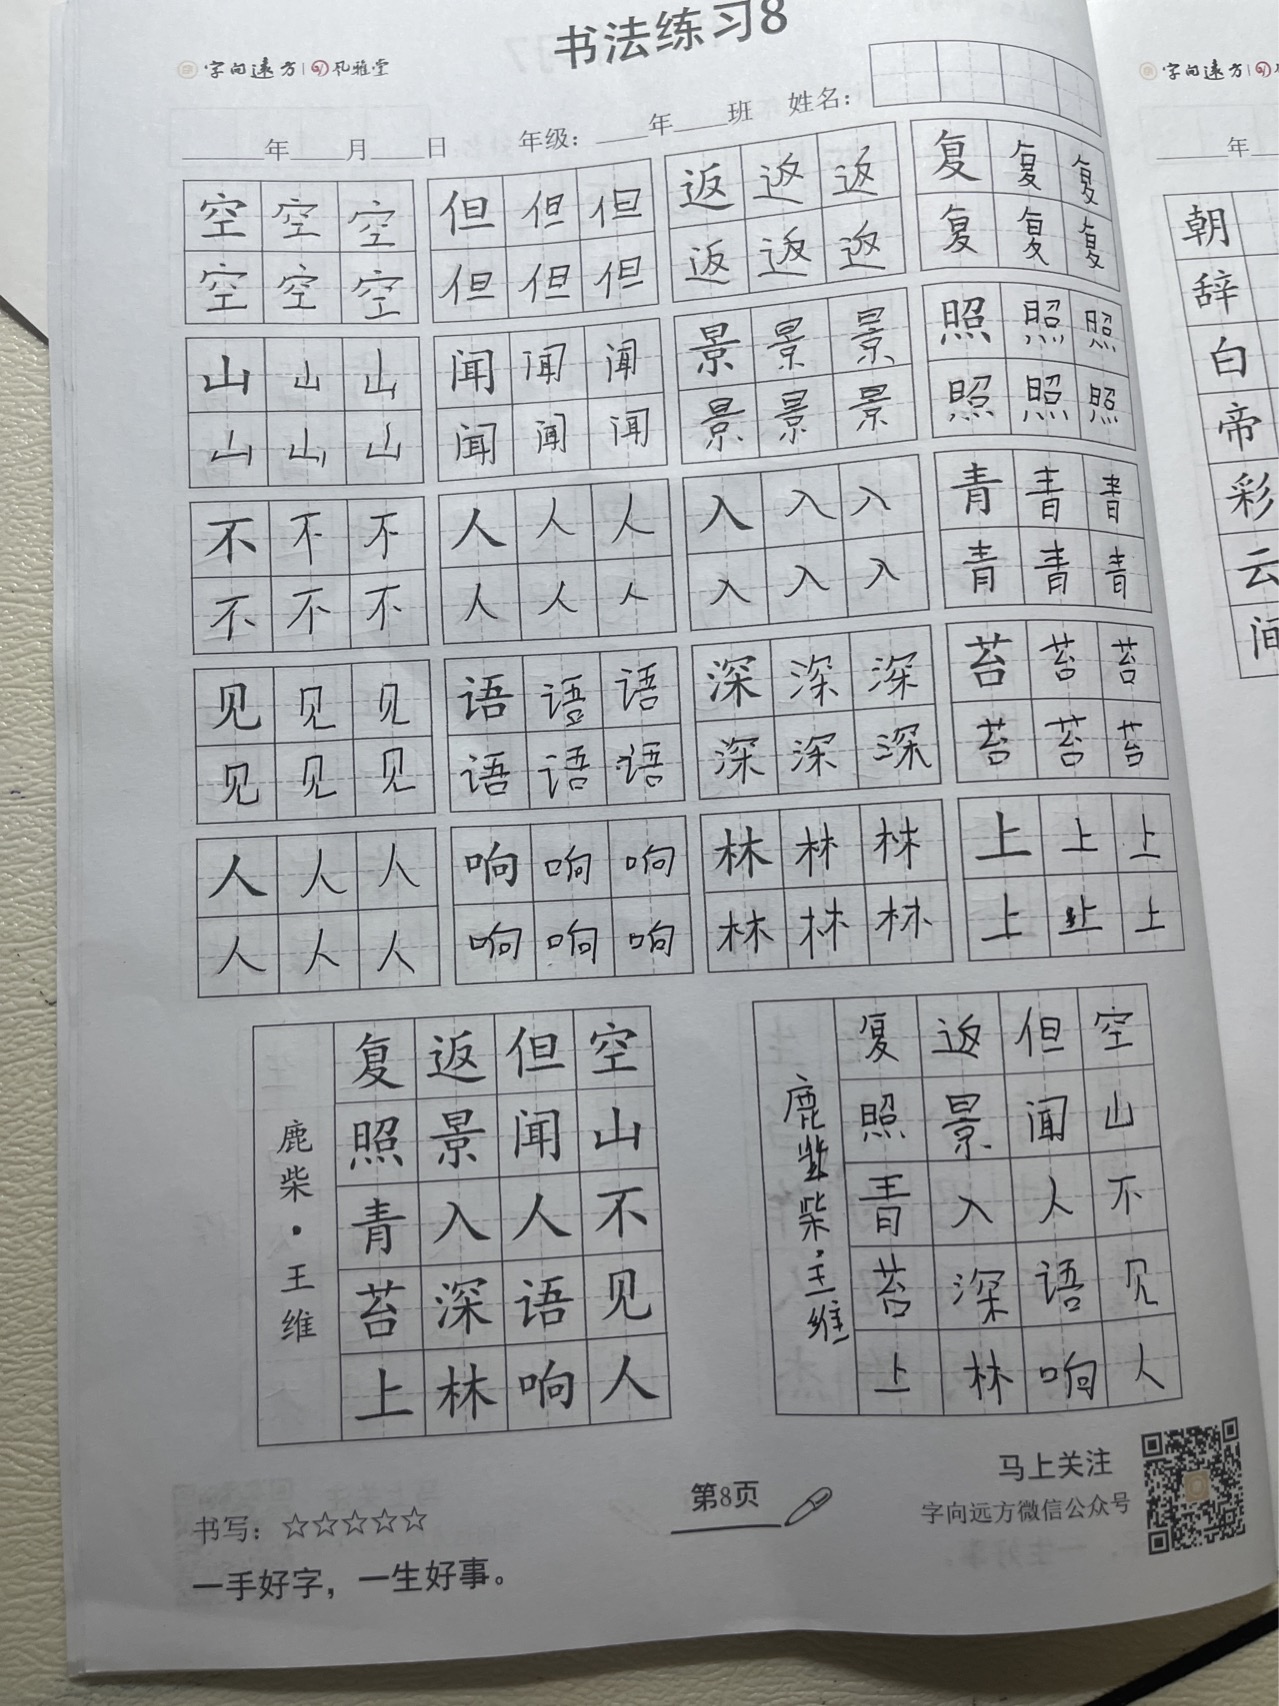 书法练习8
字向远方 | 礼雅堂
字向远方
____年____月____日 年级：____年____班 姓名：
____年
空空空 但但但 返返返 复复复
空空空 但但但 返返返 复复复
山山山 闻闻闻 景景景 照照照
山山山 闻闻闻 景景景 照照照
不不不 人人人 入入入 青青青
不不不 人人人 入入入 青青青
见见见 语语语 深深深 苔苔苔
见见见 语语语 深深深 苔苔苔
人人人 响响响 林林林 上上上
人人人 响响响 林林林 上上上
朝
辞
白
帝
彩
云
间
空山不见人
但闻人语响
返景入深林
复照青苔上
鹿柴·王维
空山不见人
但闻人语响
返景入深林
复照青苔上
鹿柴·王维
书写：☆☆☆☆☆
一手好字，一生好事。
第8页
马上关注
字向远方微信公众号